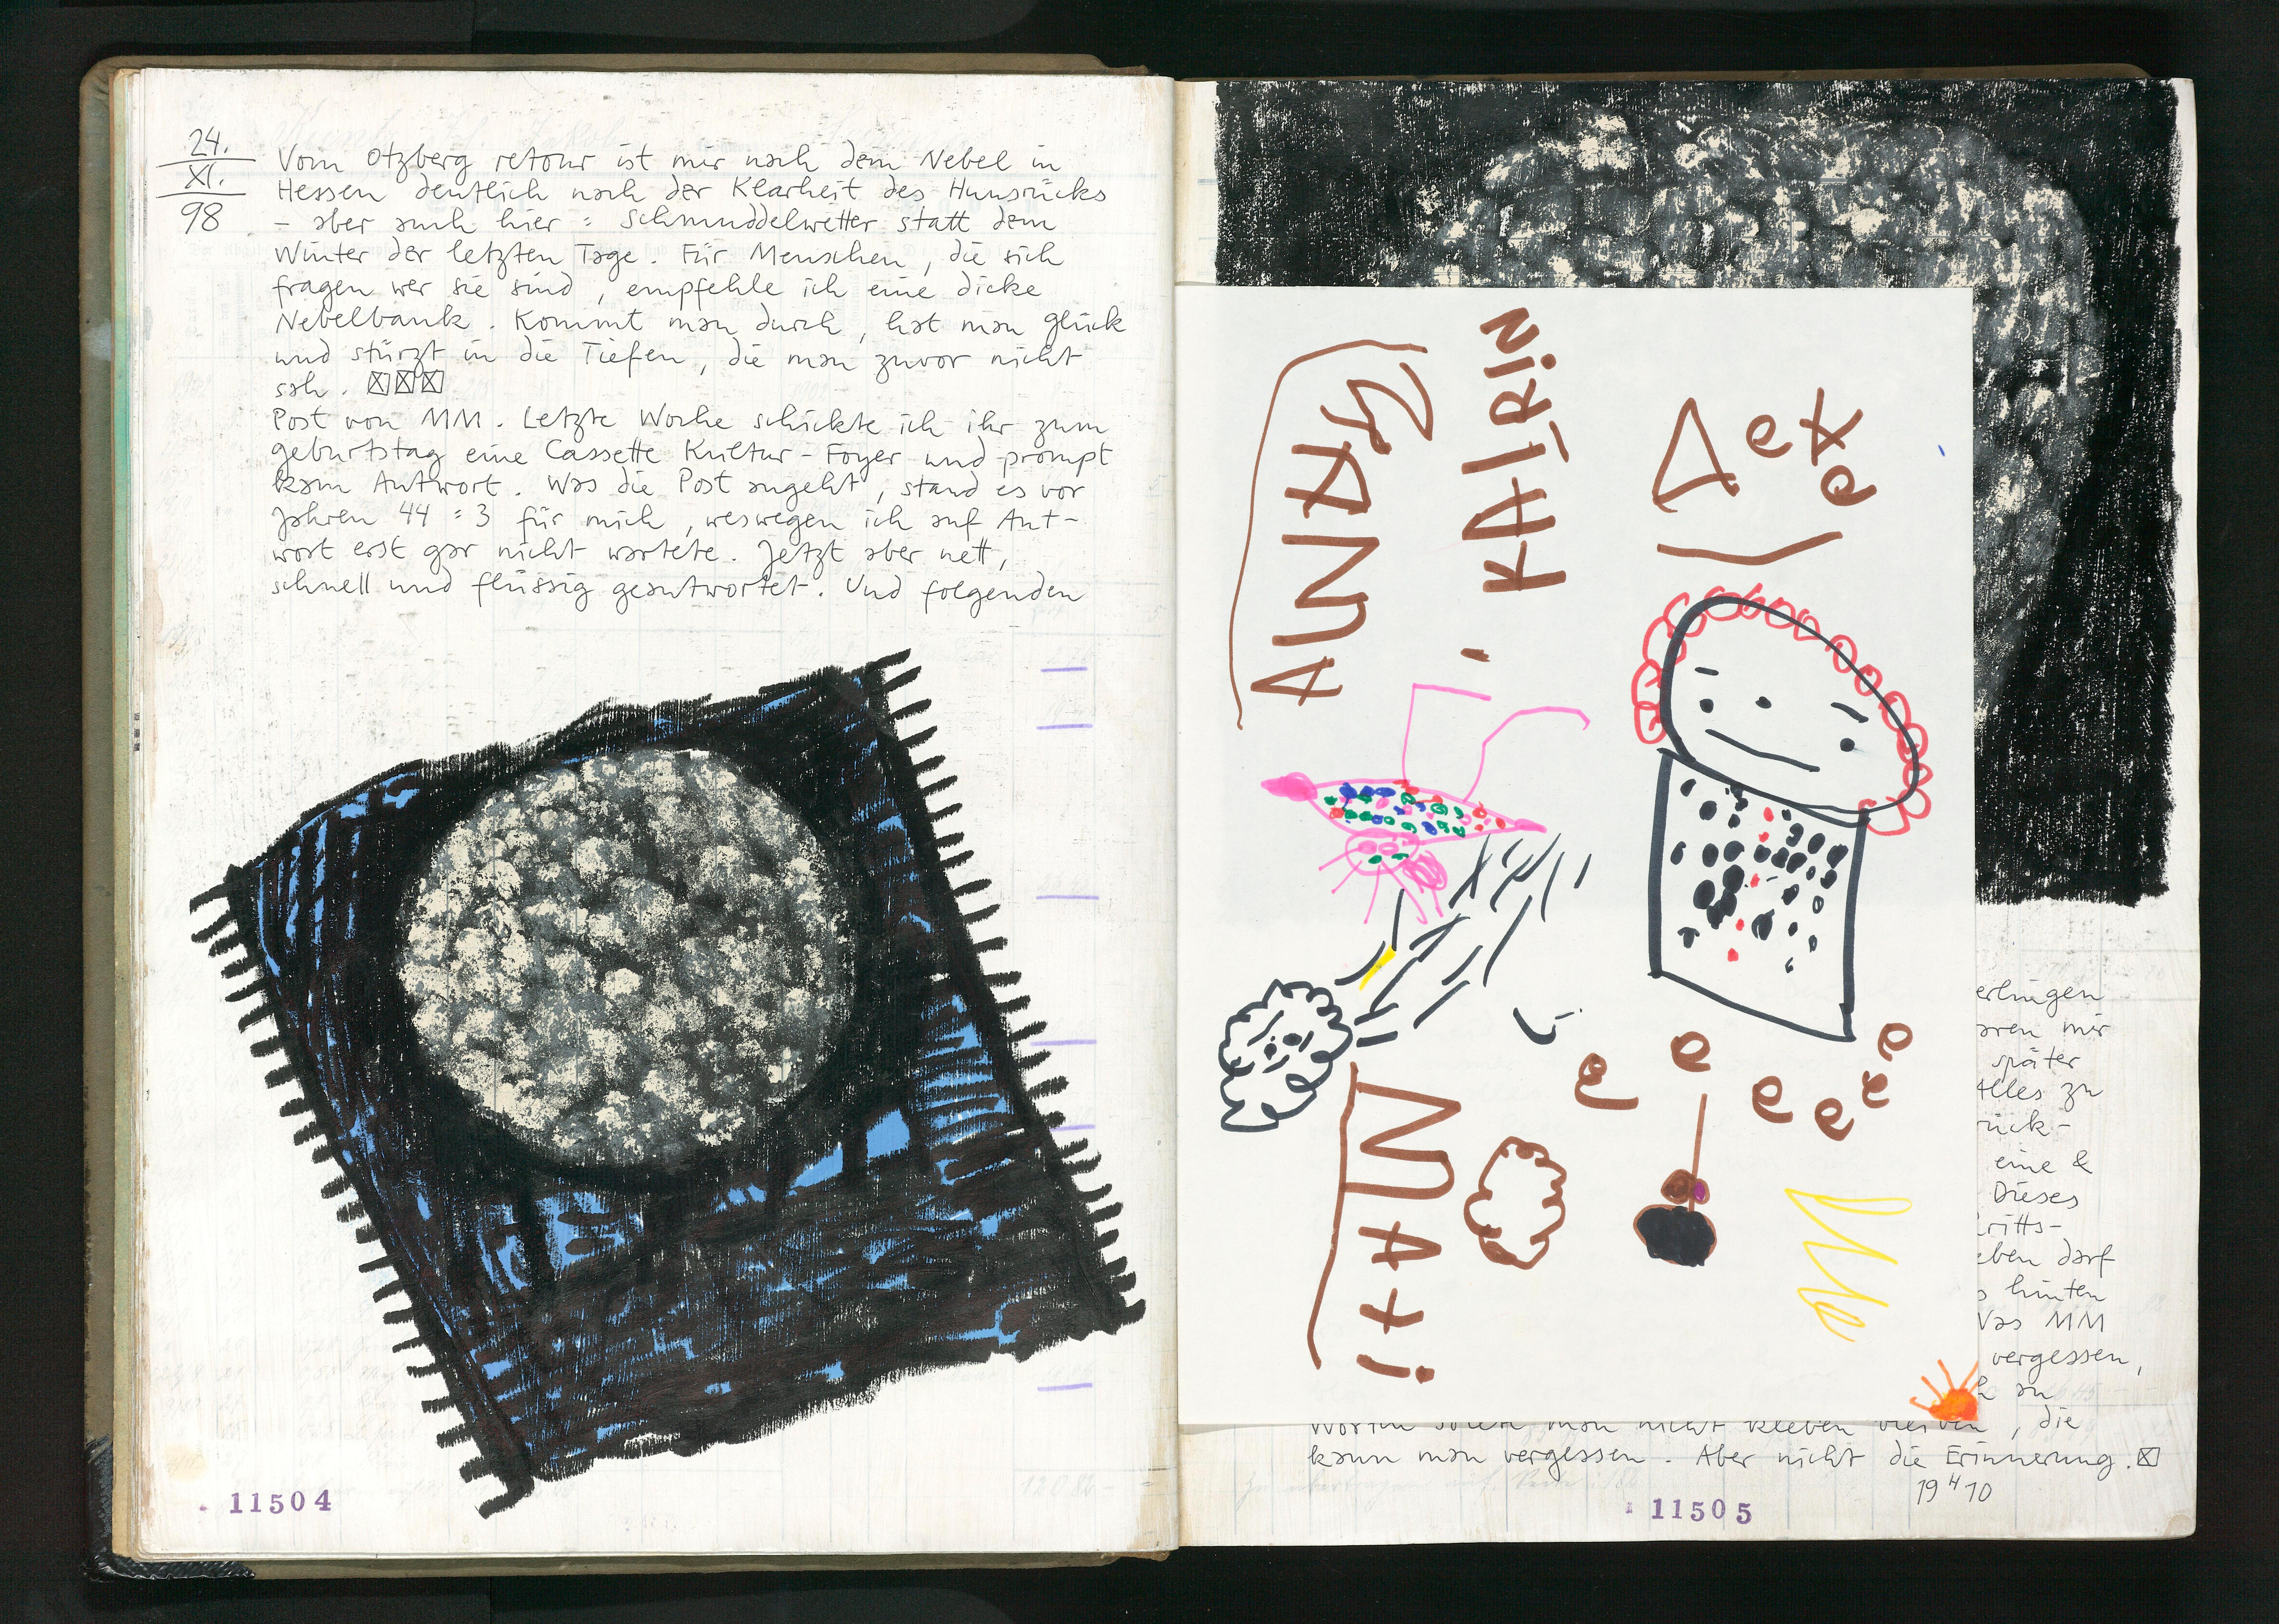 24.
XI.
98
Vom Otzberg retour ist mir nach dem Nebel in
Hessen deutlich nach der Klarheit des Hunsrücks
- aber auch hier : Schmuddelwetter statt dem
Winter der letzten Tage. Für Menschen, die sich
fragen wer sie sind, empfehle ich eine dicke
Nebelbank. Kommt man durch, hat man Glück
und stürzt in die Tiefen, die man zuvor nicht
sah.
Post von MM. Letzte Woche schickte ich ihr zum
Geburtstag eine Cassette Kultur-Foyer und prompt
kam Antwort. Was die Post angeht, stand es vor
Jahren 44 : 3 für mich, weswegen ich auf Ant-
wort erst gar nicht wartete. Jetzt aber nett,
schnell und flüssig geantwortet. Und folgenden
11504
KATRIN
erlingen
aren mir
später
Alles zu
rück-
eine &
Dieses
ritts-
eben darf
hinten
Was MM
vergessen,
an
Worin sollte man nicht kleben bleiben, die
kann man vergessen. Aber nicht die Erinnerung.
19 4 10
11505